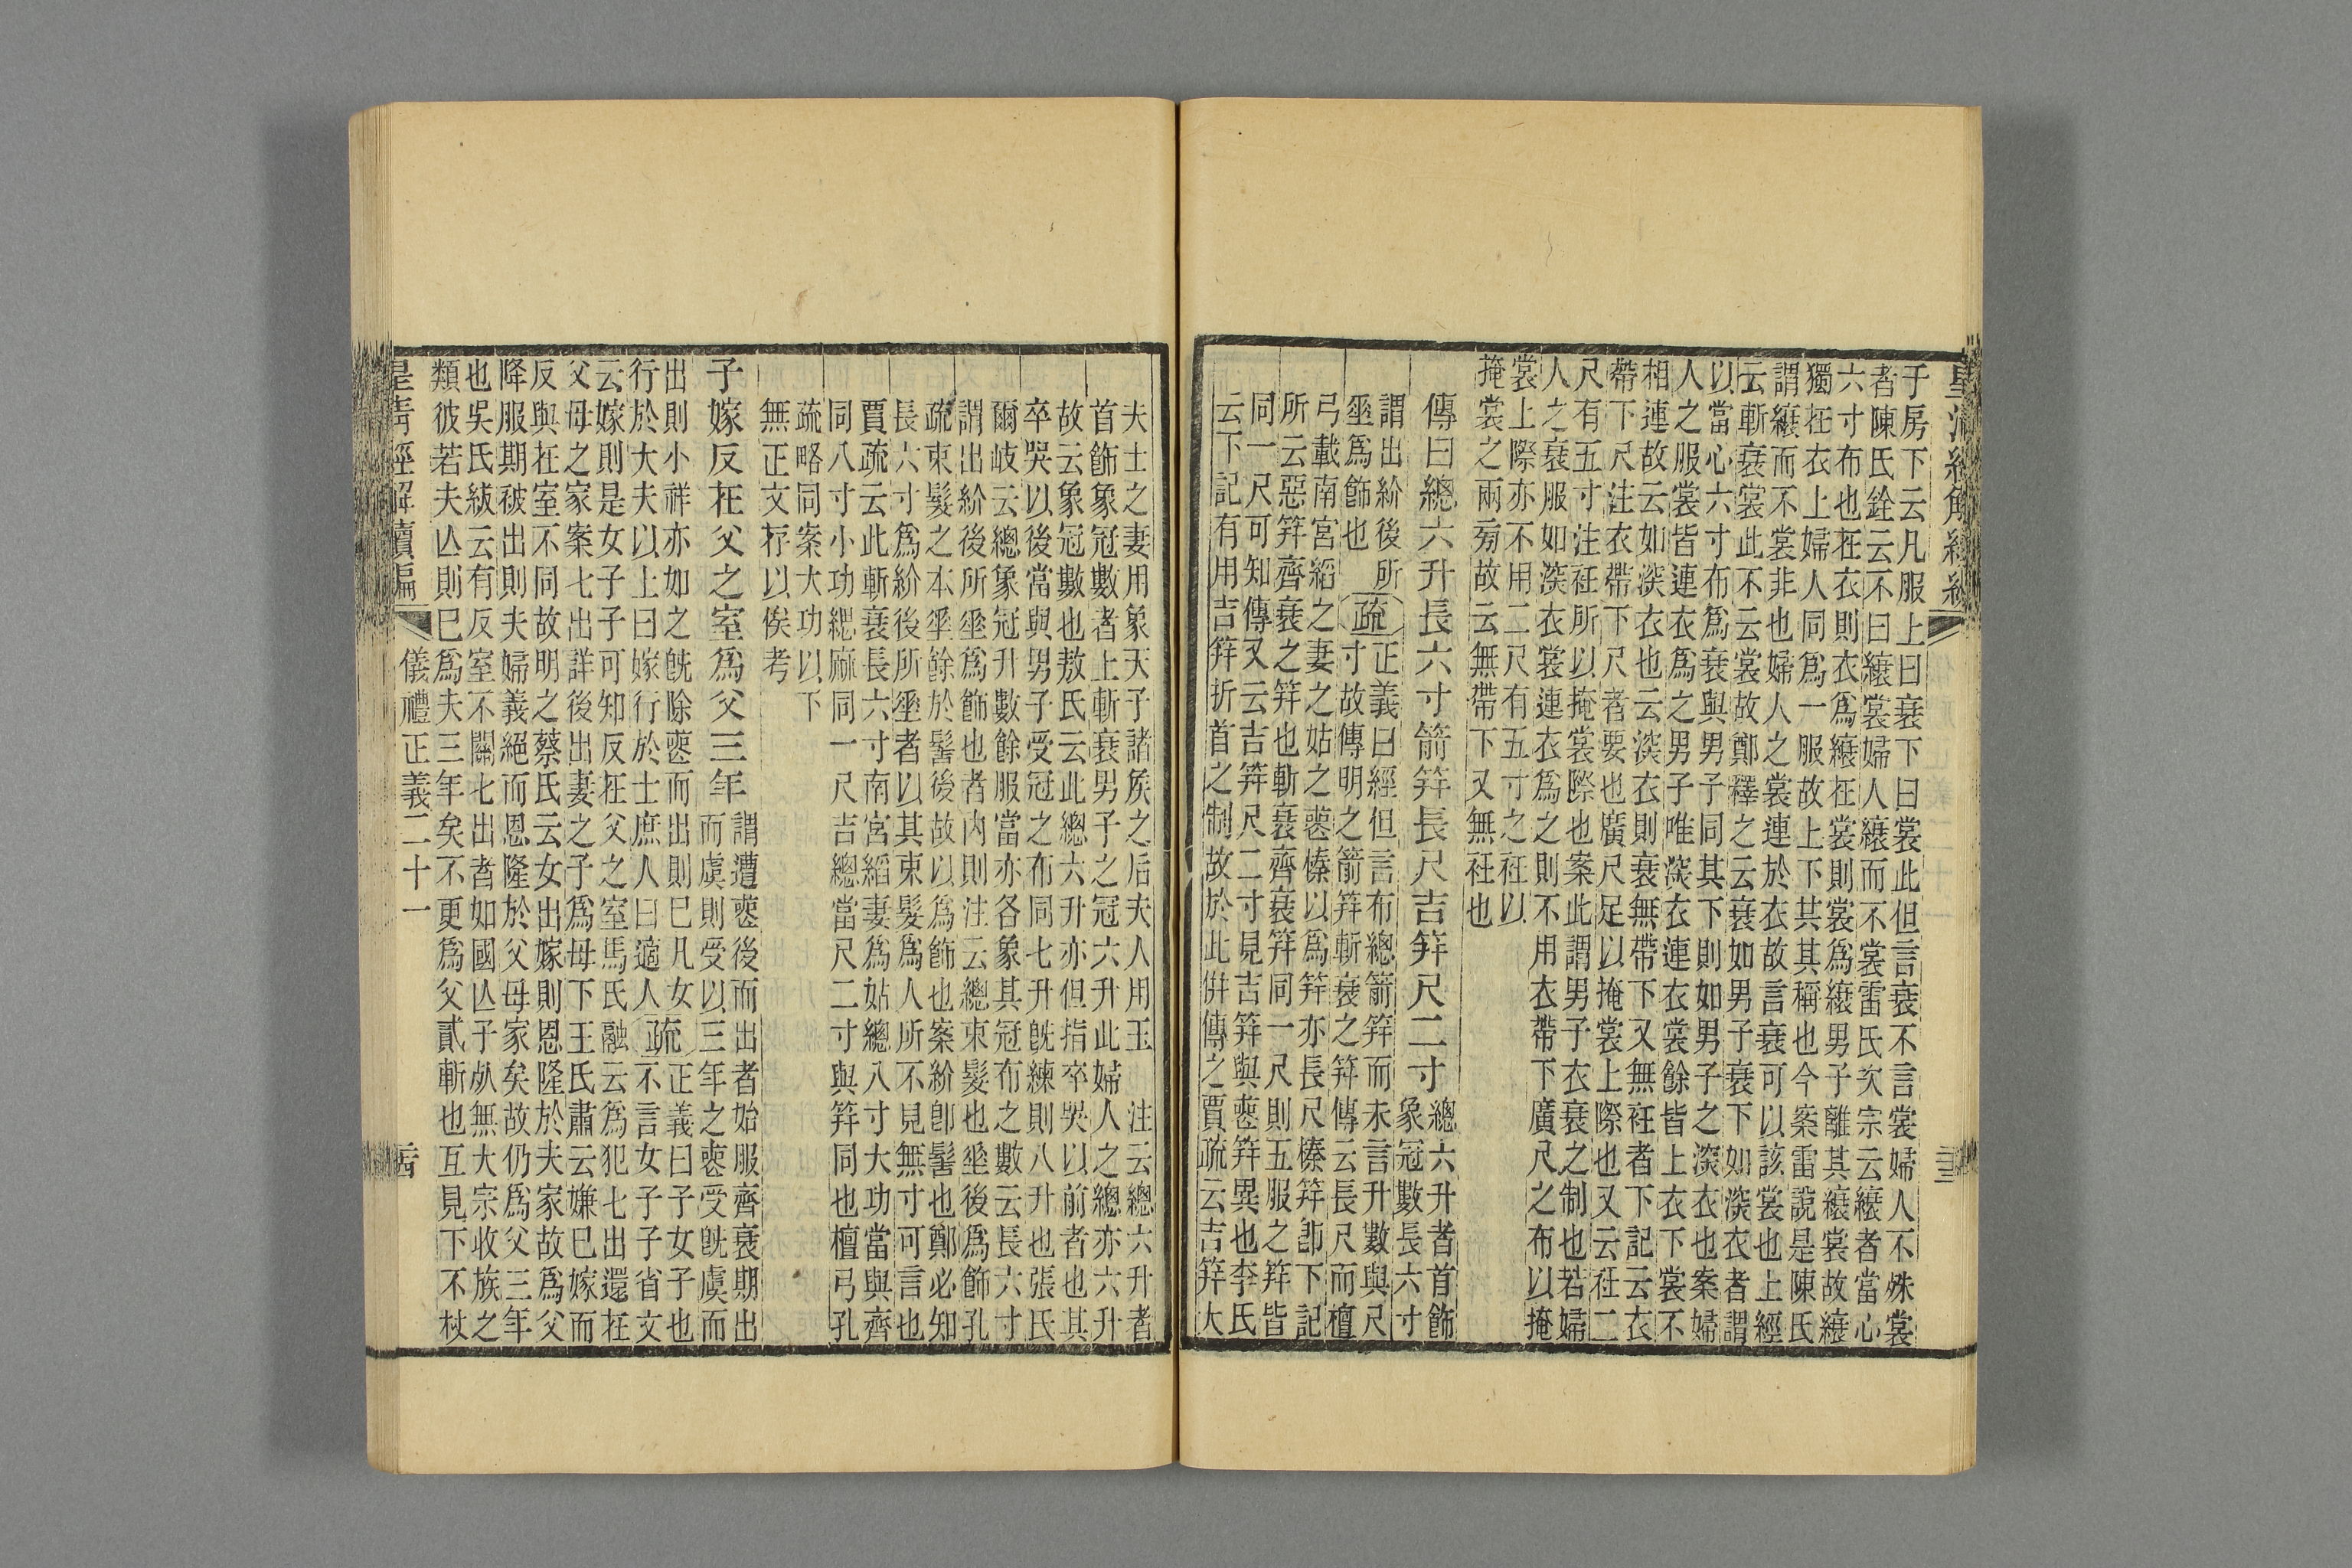 于房下云凡服上曰衰下曰裳此但言衰不言裳婦人不殊裳
者陳氏銓云不曰縗裳婦人縗而不裳雷氏次宗云縗者當心
六寸布也在衣則衣爲縗在裳則裳爲縗男子離其縗裳故縗
獨在衣上婦人同爲一服故上下其其稱也今案雷說是陳氏
謂縗而不裳非也婦人之裳連於衣故言衰可以該裳也上經
云斬衰裳此不云裳故鄭釋之云衰如男子衰下如深衣者謂
以當心六寸布爲衰與男子同其下則如男子之深衣也案婦
人之服裳皆連衣爲之男子唯深衣連衣裳餘皆上衣下裳不
相連故云如深衣也云深衣則衰無帶下又無衽者下記云衣
帶下尺注衣帶下尺者要也廣尺足以掩裳上際也又云衽二
尺有五寸注衽所以掩裳際也案此謂男子衣衰之制也若婦
人之衰服如深衣裳連衣爲之則不用衣帶下廣尺之布以掩
裳上際亦不用二尺有五寸之衽以
掩裳之兩旁故云無帶下又無衽也
傳曰總六升長六寸箭笄長尺吉笄尺二寸
總六升者首飾
象冠數長六寸
謂出紒後所
垂爲飾也
疏
正義曰經但言布總箭笄而未言升數與尺
寸故傳明之箭笄斬衰之笄傳云長尺而檀
弓載南宮縚之妻之姑之喪榛以爲笄亦長尺榛笄卽下記
所云惡笄齊衰之笄也斬衰齊衰笄同一尺則五服之笄皆
同一尺可知傳又云吉笄尺二寸見吉笄與喪笄異也李氏
云下記有用吉笄折首之制故於此倂傳之賈疏云吉笄大
夫士之妻用象天子諸侯之后夫人用玉　注云總六升者
首飾象冠數者上斬衰男子之冠六升此婦人之總亦六升
故云象冠數也敖氏云此總六升亦但指卒哭以前者也其
卒哭以後當與男子受冠之布同七升旣練則八升也張氏
爾岐云總象冠升數餘服當亦各象其冠布之數云長六寸
謂出紒後所垂爲飾也者內則注云總束髮也垂後爲飾孔
疏束髮之本垂餘於髻後故以爲飾也案紒卽髻也鄭必知
長六寸爲紒後所垂者以其束髮爲人所不見無寸可言也
賈疏云此斬衰長六寸南宮縚妻爲姑總八寸大功當與齊
同八寸小功緦麻同一尺吉總當尺二寸與笄同也檀弓孔
疏略同案大功以下
無正文存以俟考
子嫁反在父之室爲父三年
謂遭喪後而出者始服齊衰期出
而虞則受以三年之喪受旣虞而
出則小祥亦如之旣除喪而出則已凡女
行於大夫以上曰嫁行於士庶人曰適人
疏
正義曰子女子也
不言女子子省文
云嫁則是女子子可知反在父之室馬氏融云爲犯七出還在
父母之家案七出詳後出妻之子爲母下王氏肅云嫌已嫁而
反與在室不同故明之蔡氏云女出嫁則恩隆於夫家故爲父
降服期被出則夫婦義絕而恩隆於父母家矣故仍爲父三年
也吳氏紱云有反室不關七出者如國亾子孤無大宗收族之
類彼若夫亾則巳爲夫三年矣不更爲父貳斬也互見下不杖
儀禮正義二十一